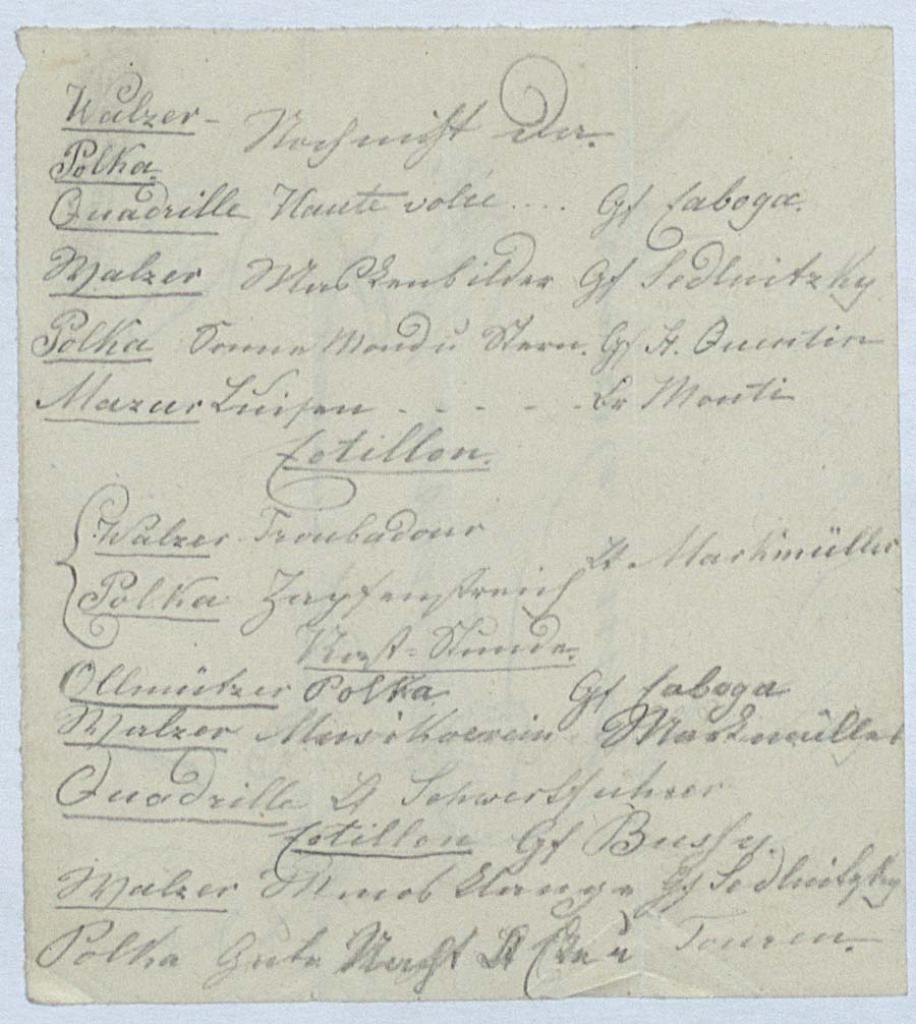 Walzer -
Noch nicht Da.
Polka.
Quadrille Haute volée .... Gf Caboga.
Walzer Maskenbilder Gf Sedlnitzky
Polka Sonne Mond u Stern. Gf St. Quentin
Mazur Luisen - - - - - Br Monti
Cotillon.
Walzer Troubadour
Lt Markmüller
Polka Zapfenstreich
Rast=Stunde.
Ollmützer Polka Gf Caboga
Walzer Musikverein Markmüller
Quadrille Lt Schwertführer
Cotillon Gf Bussy.
Walzer Gf Sedlnitzky
Polka Gute Nacht Lt Touren.